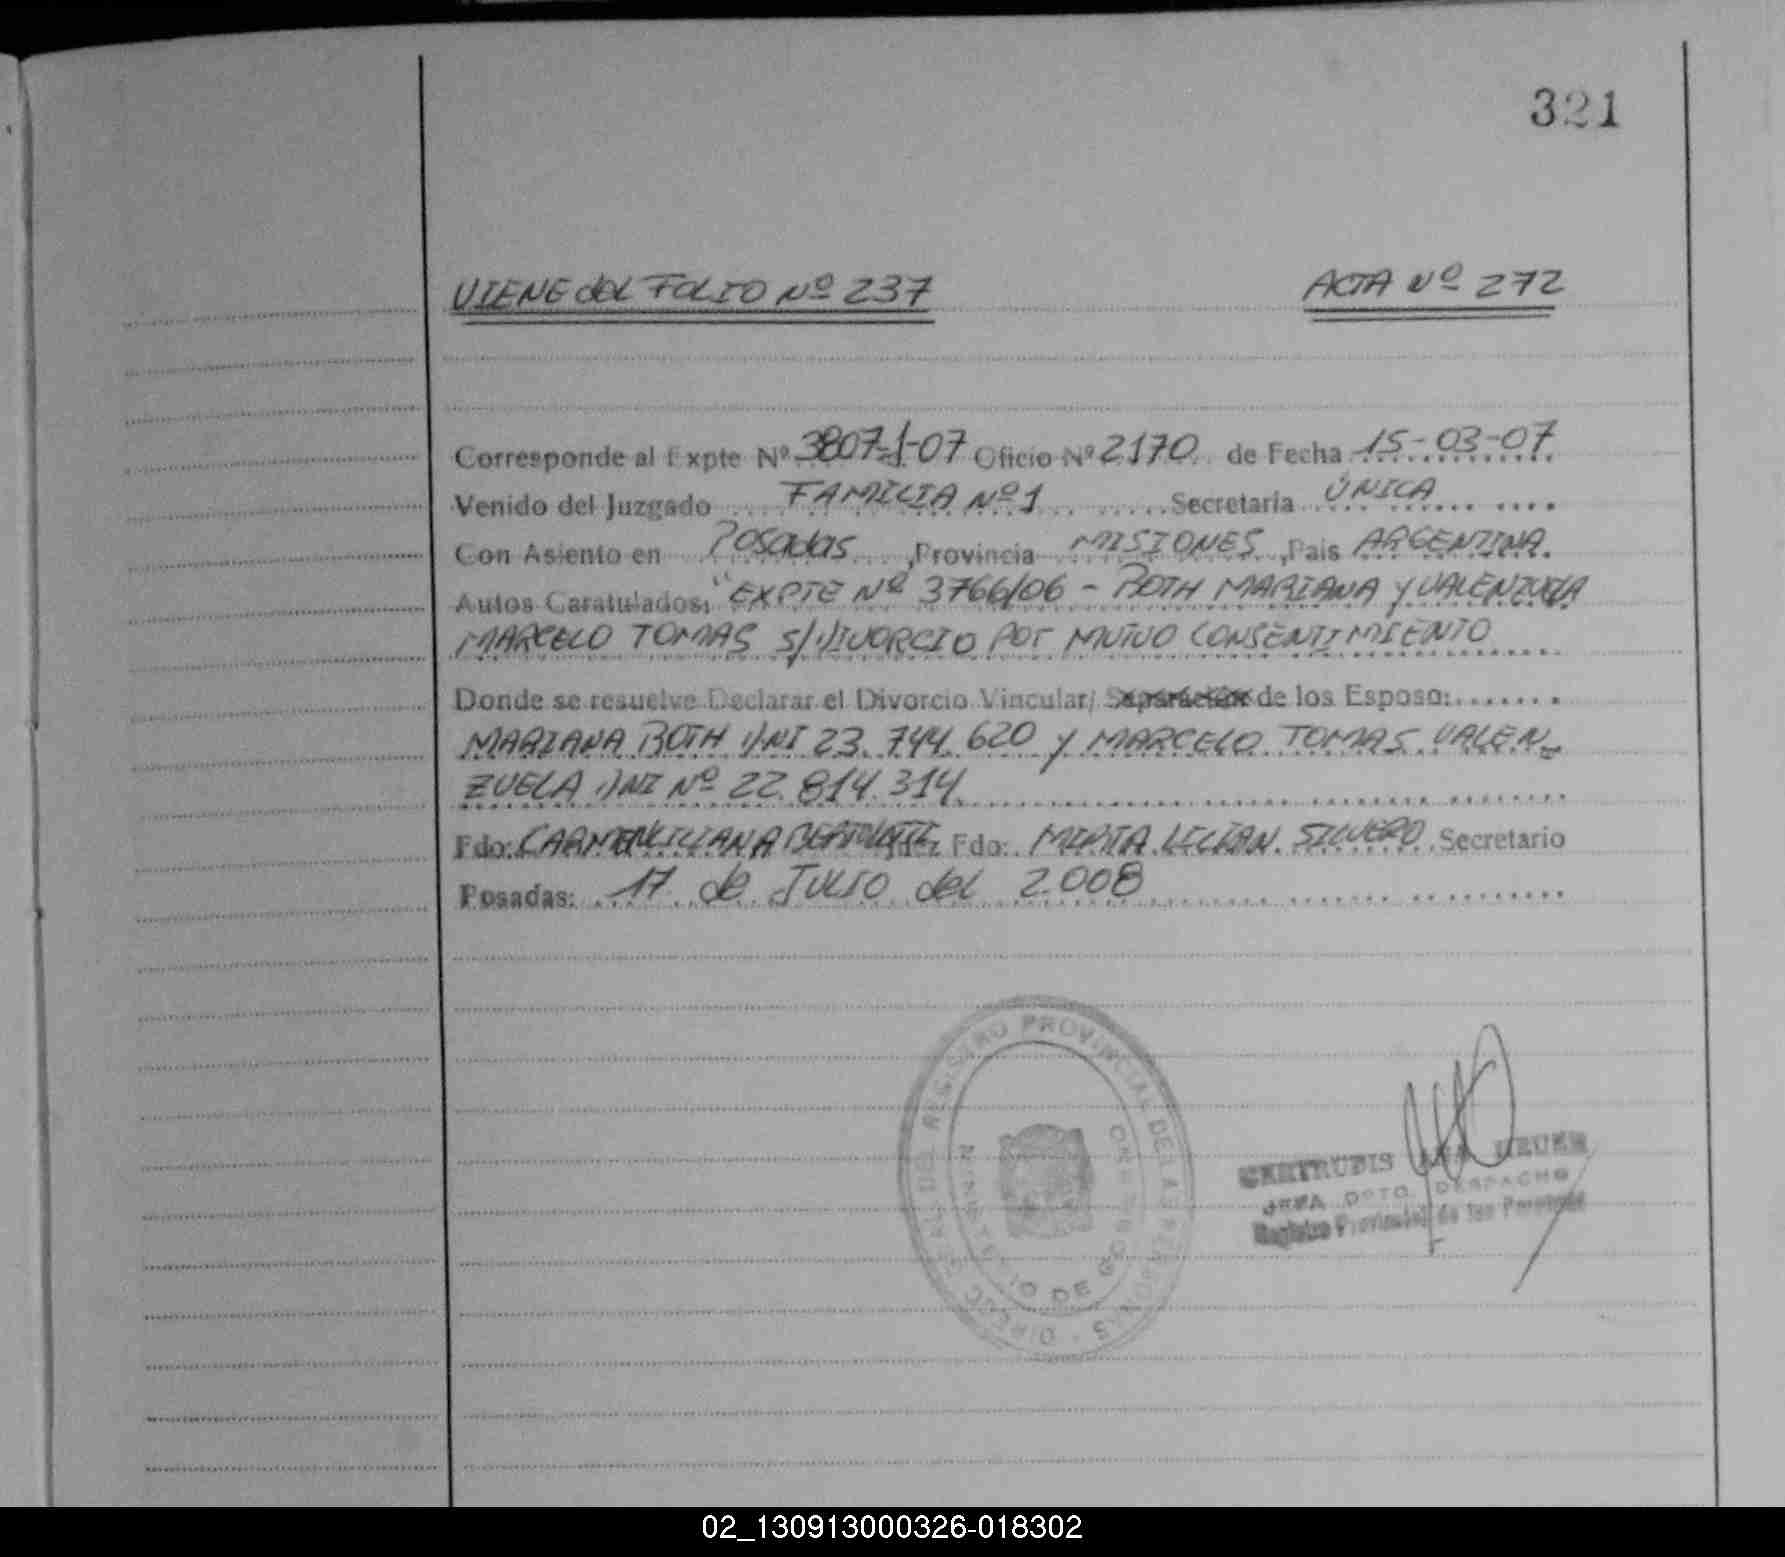 321
VIENE del FOLIO Nº 237 ACTA Nº 272
Corresponde al Expte Nº 3807-J-07 Oficio Nº 2170 de Fecha 15-03-07
Venido del Juzgado FAMILIA Nº 1 Secretaria ÚNICA
Con Asiento en Posadas, Provincia MISIONES, Pais ARGENTINA.
Autos Caratulados: "EXPTE Nº 3766/06 - BOTH MARIANA y VALENZUELA
MARCELO TOMAS S/ DIVORCIO POR MUTUO CONSENTIMIENTO
Donde se resuelve Declarar el Divorcio Vincular/ Separación de los Esposo:
MARIANA BOTH DNI 23.744.620 y MARCELO TOMAS VALEN-
ZUELA DNI Nº 22.814.314.
Fdo: CARMEN LILIANA Fdo: MIRTA LILIAN SILVERO Secretario
Posadas: 17 de JULIO del 2.008
REGISTRO PROVINCIAL DE LAS PERSONAS
GERTRUDIS
JEFA DPTO. DESPACHO
Registro Provincial de las Personas
02_130913000326-018302